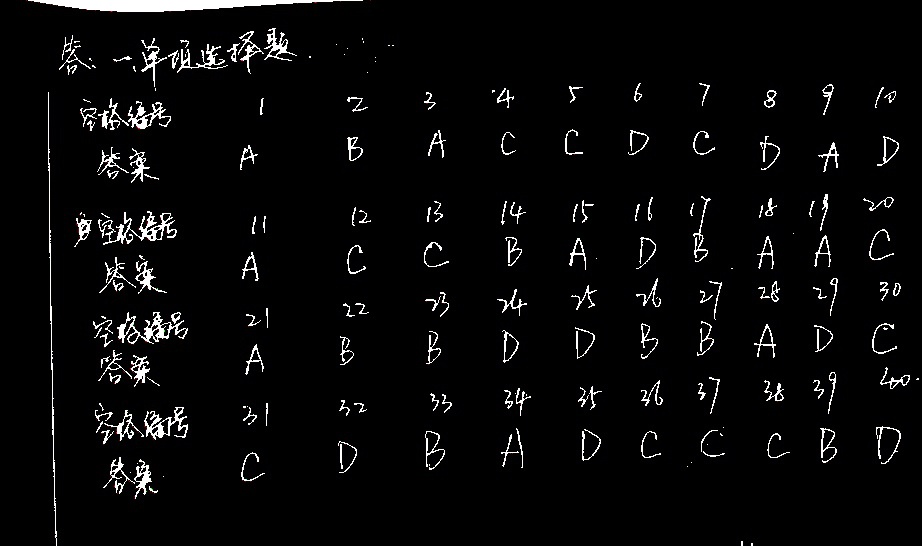 答：一、单项选择题.
空格编号 1 2 3 4 5 6 7 8 9 10
答案 A B A C C D C D A D
空格编号 11 12 13 14 15 16 17 18 19 20
答案 A C C B A D B A A C
空格编号 21 22 23 24 25 26 27 28 29 30
答案 A B B D D B B A D C
空格编号 31 32 33 34 35 36 37 38 39 40.
答案 C D B A D C C C B D